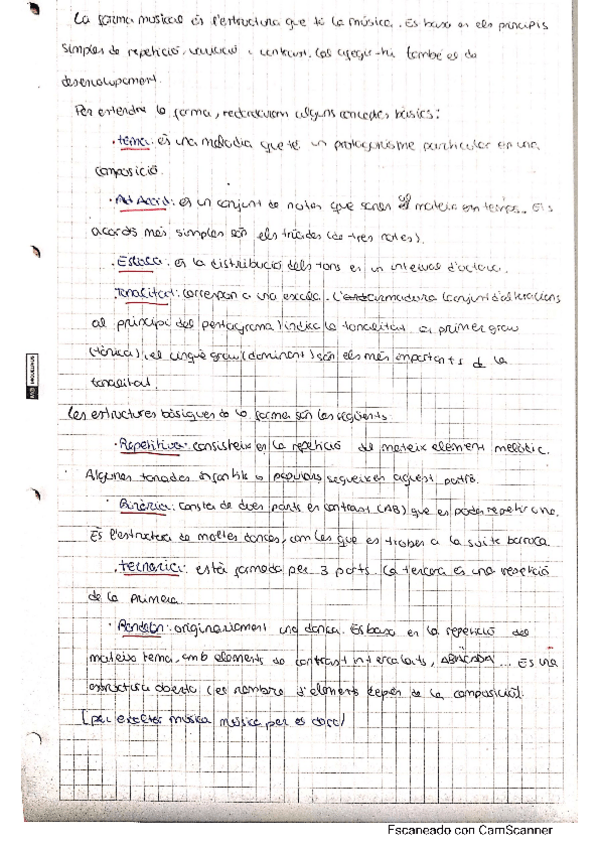 La forma musical és l'estructura que té la música. Es basa en els principis
simples de repetició, variació i contrast. Cal afegir-hi també el de
desenvolupament.
Per entendre la forma, recordarem alguns conceptes bàsics:
· tema: és una melodia que té un protagonisme particular en una
composició.
· Acord: és un conjunt de notes que sonen al mateix temps. Els
acords més simples són els tríades (de tres notes).
· Escala: és la distribució dels tons en un interval d'octava.
· Tonalitat: correspon a una escala. L'armadura (conjunt d'alteracions
al principi del pentagrama) indica la tonalitat. El primer grau
(tònica) i el cinquè grau (dominant) són els més importants de la
tonalitat.
Les estructures bàsiques de la forma són les següents:
· Repetitiva: consisteix en la repetició del mateix element melòdic.
Algunes tonades infantils o populars segueixen aquest patró.
· Binària: consta de dues parts en contrast (AB) que es poden repetir o no.
És l'estructura de moltes danses, com les que es troben a la suite barroca
· ternària: està formada per 3 parts. La tercera és una repetició
de la primera.
· Rondó: originàriament una dansa. Es basa en la repetició del
mateix tema, amb elements de contrast intercalats, ABACADA... És una
estructura oberta (el nombre d'elements depèn de la composició).
música música per es
Escaneado con CamScanner